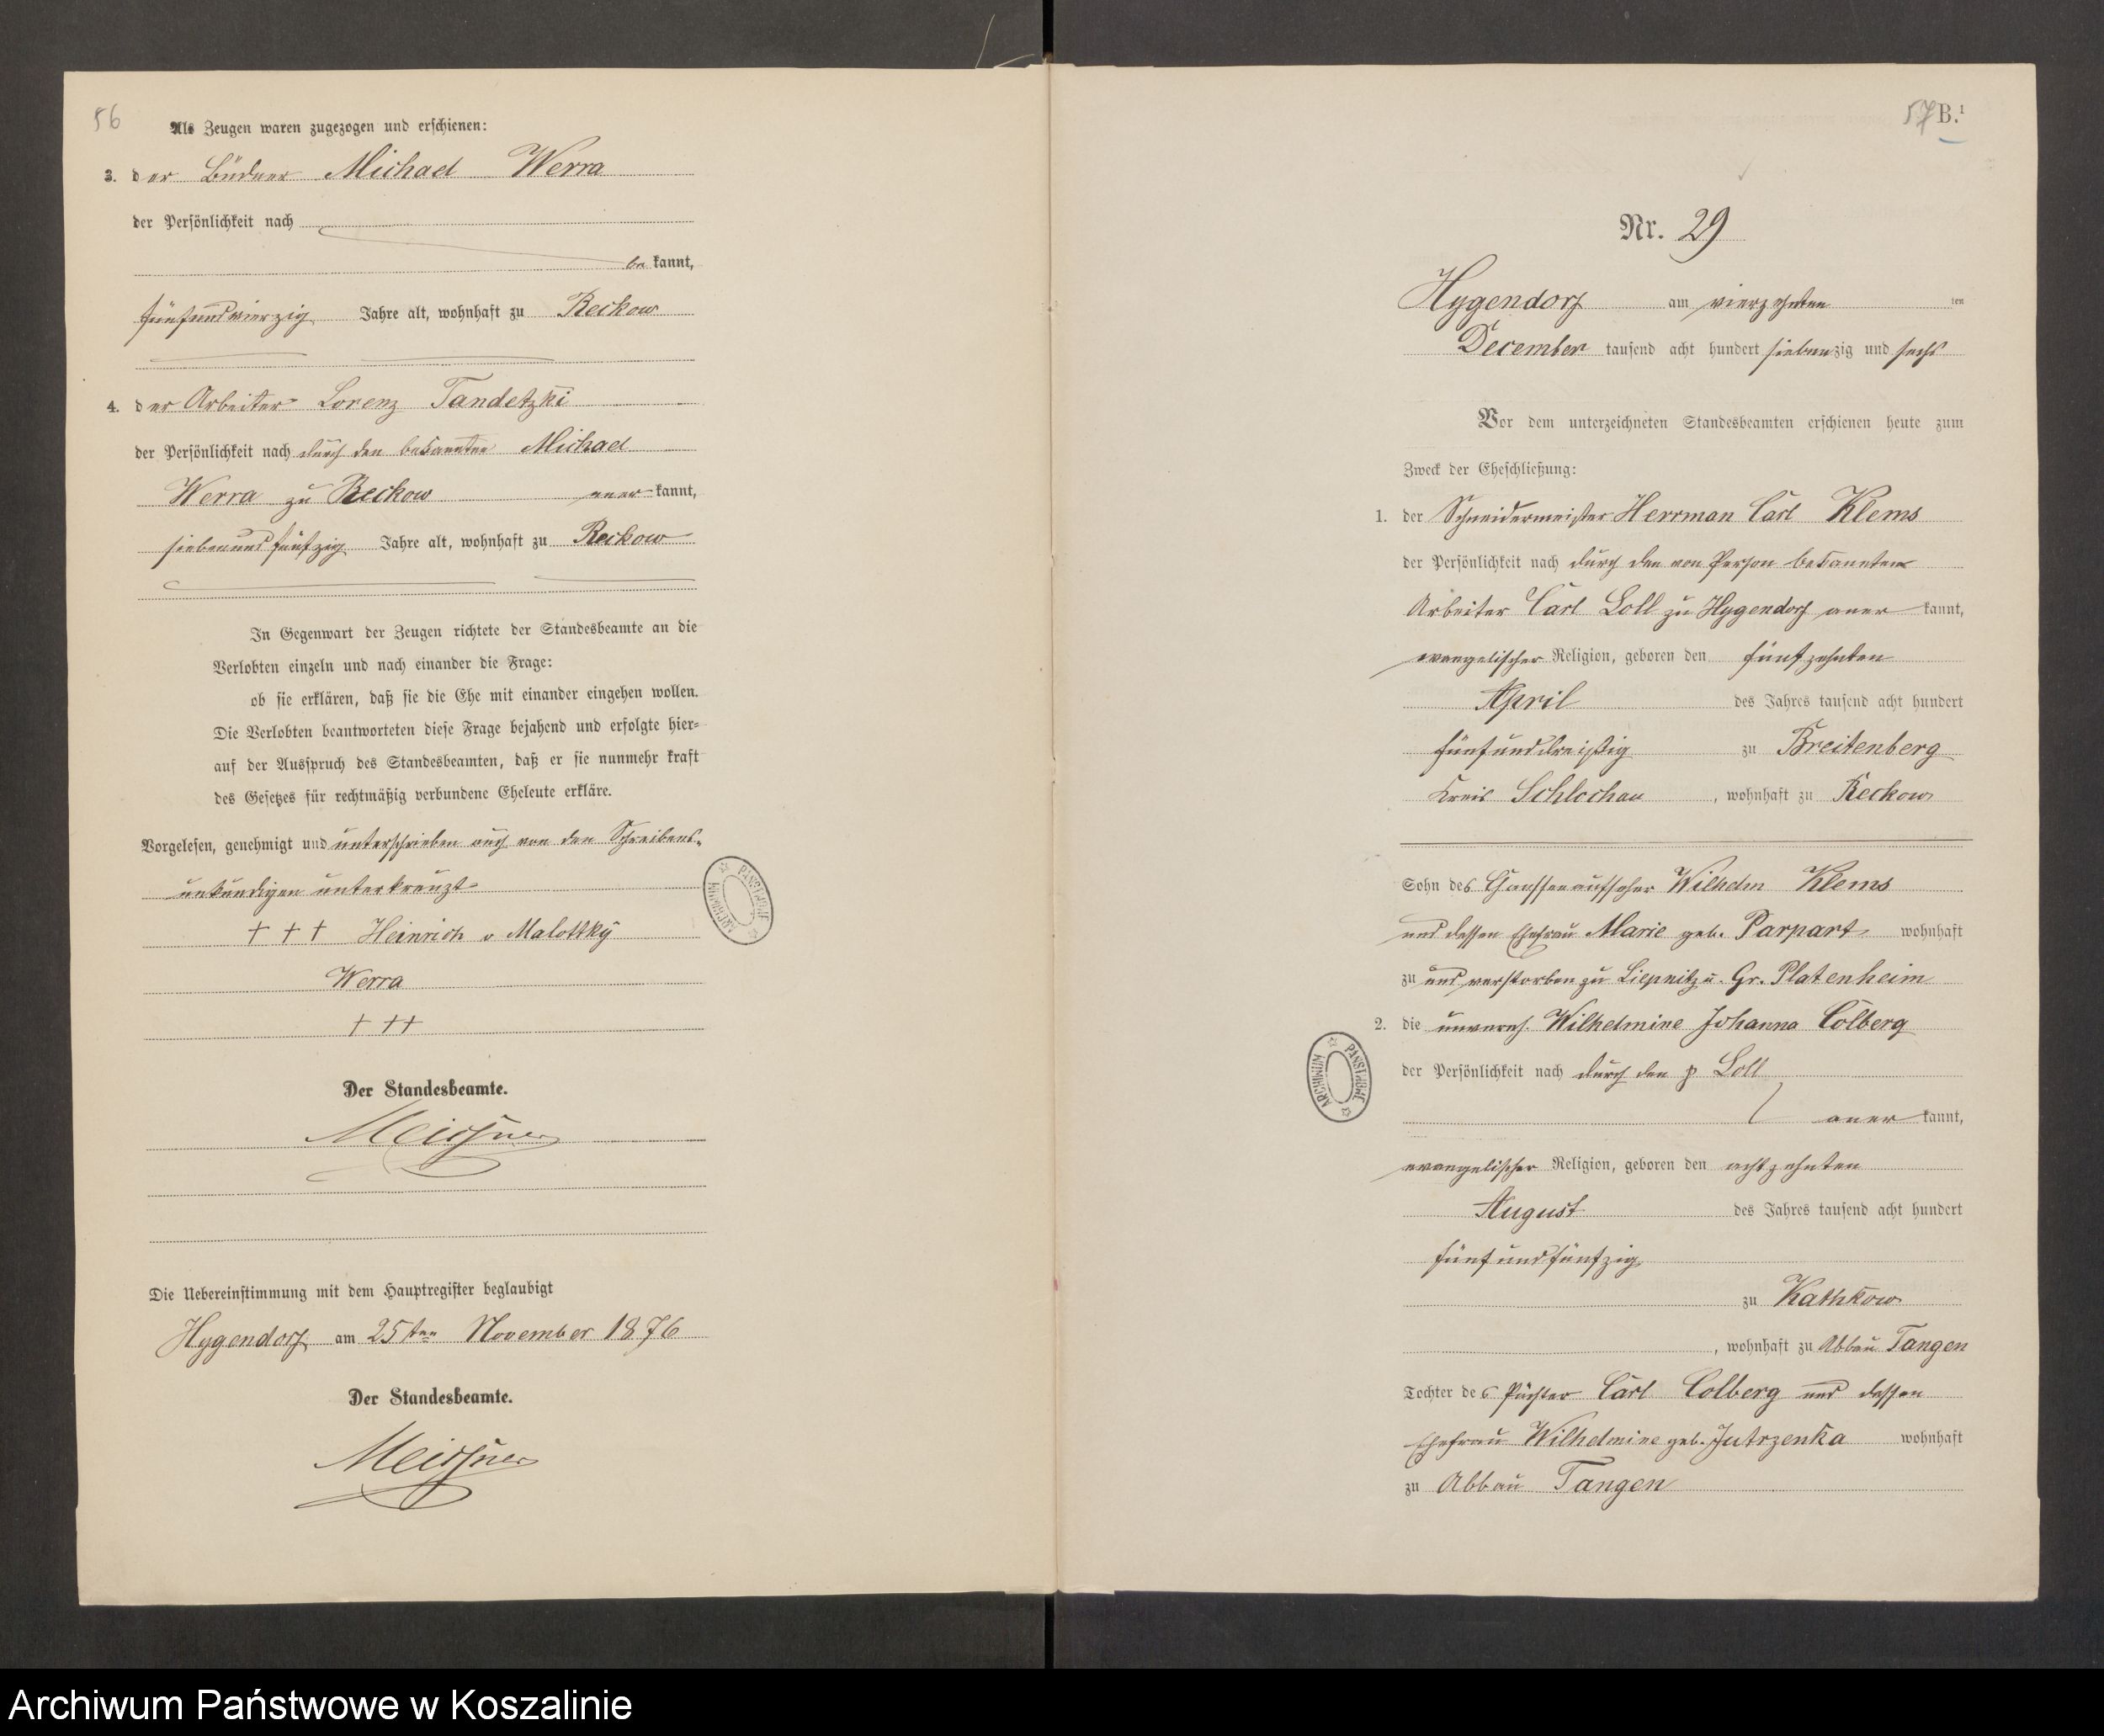 56
Als Zeugen waren zugezogen und erschienen:
3. der Büdner Michael Werra
der Persönlichkeit nach
be kannt,
fünfundvierzig Jahre alt, wohnhaft zu Reckow
4. der Arbeiter Lorenz Tandetzki
der Persönlichkeit nach durch den bekannten Michael
Werra zu Reckow aner kannt,
siebenundfünfzig Jahre alt, wohnhaft zu Reckow
In Gegenwart der Zeugen richtete der Standesbeamte an die
Verlobten einzeln und nach einander die Frage:
ob sie erklären, daß sie die Ehe mit einander eingehen wollen.
Die Verlobten beantworteten diese Frage bejahend und erfolgte hier-
auf der Ausspruch des Standesbeamten, daß er sie nunmehr kraft
des Gesetzes für rechtmäßig verbundene Eheleute erkläre.
Vorgelesen, genehmigt und unterschrieben auch von den Schreibens-
unkundigen unterkreuzt
+ + + Heinrich v Malottky
Werra
+ + +
Der Standesbeamte.
Meissner
Die Uebereinstimmung mit dem Hauptregister beglaubigt
Hygendorf am 25ten November 1876
Der Standesbeamte.
Meissner
ARCHIWUM PAŃSTWOWE
57 B.1
Nr. 29
Hygendorf am vierzehnten ten
December tausend acht hundert siebenzig und sechs
Vor dem unterzeichneten Standesbeamten erschienen heute zum
Zweck der Eheschließung:
1. der Schneidermeister Herrman Carl Klems
der Persönlichkeit nach durch den von Person bekannten
Arbeiter Carl Loll zu Hygendorf aner kannt,
evangelischer Religion, geboren den fünfzehnten
April des Jahres tausend acht hundert
fünfunddreißig zu Breitenberg
Kreis Schlochau, wohnhaft zu Reckow
Sohn des Chausseeaufseher Wilhelm Klems
und dessen Ehefrau Marie geb. Parpart wohnhaft
zu und verstorben zu Liepnitz u. Gr. Platenheim
2. die unvereh. Wilhelmine Johanna Colberg
der Persönlichkeit nach durch den p Loll
aner kannt,
evangelischer Religion, geboren den achtzehnten
August des Jahres tausend acht hundert
fünfundfünfzig
zu Kathkow
, wohnhaft zu Abbau Tangen
Tochter des Pächter Carl Colberg und dessen
Ehefrau Wilhelmine geb. Jutrzenka wohnhaft
zu Abbau Tangen
ARCHIWUM PAŃSTWOWE
Archiwum Państwowe w Koszalinie